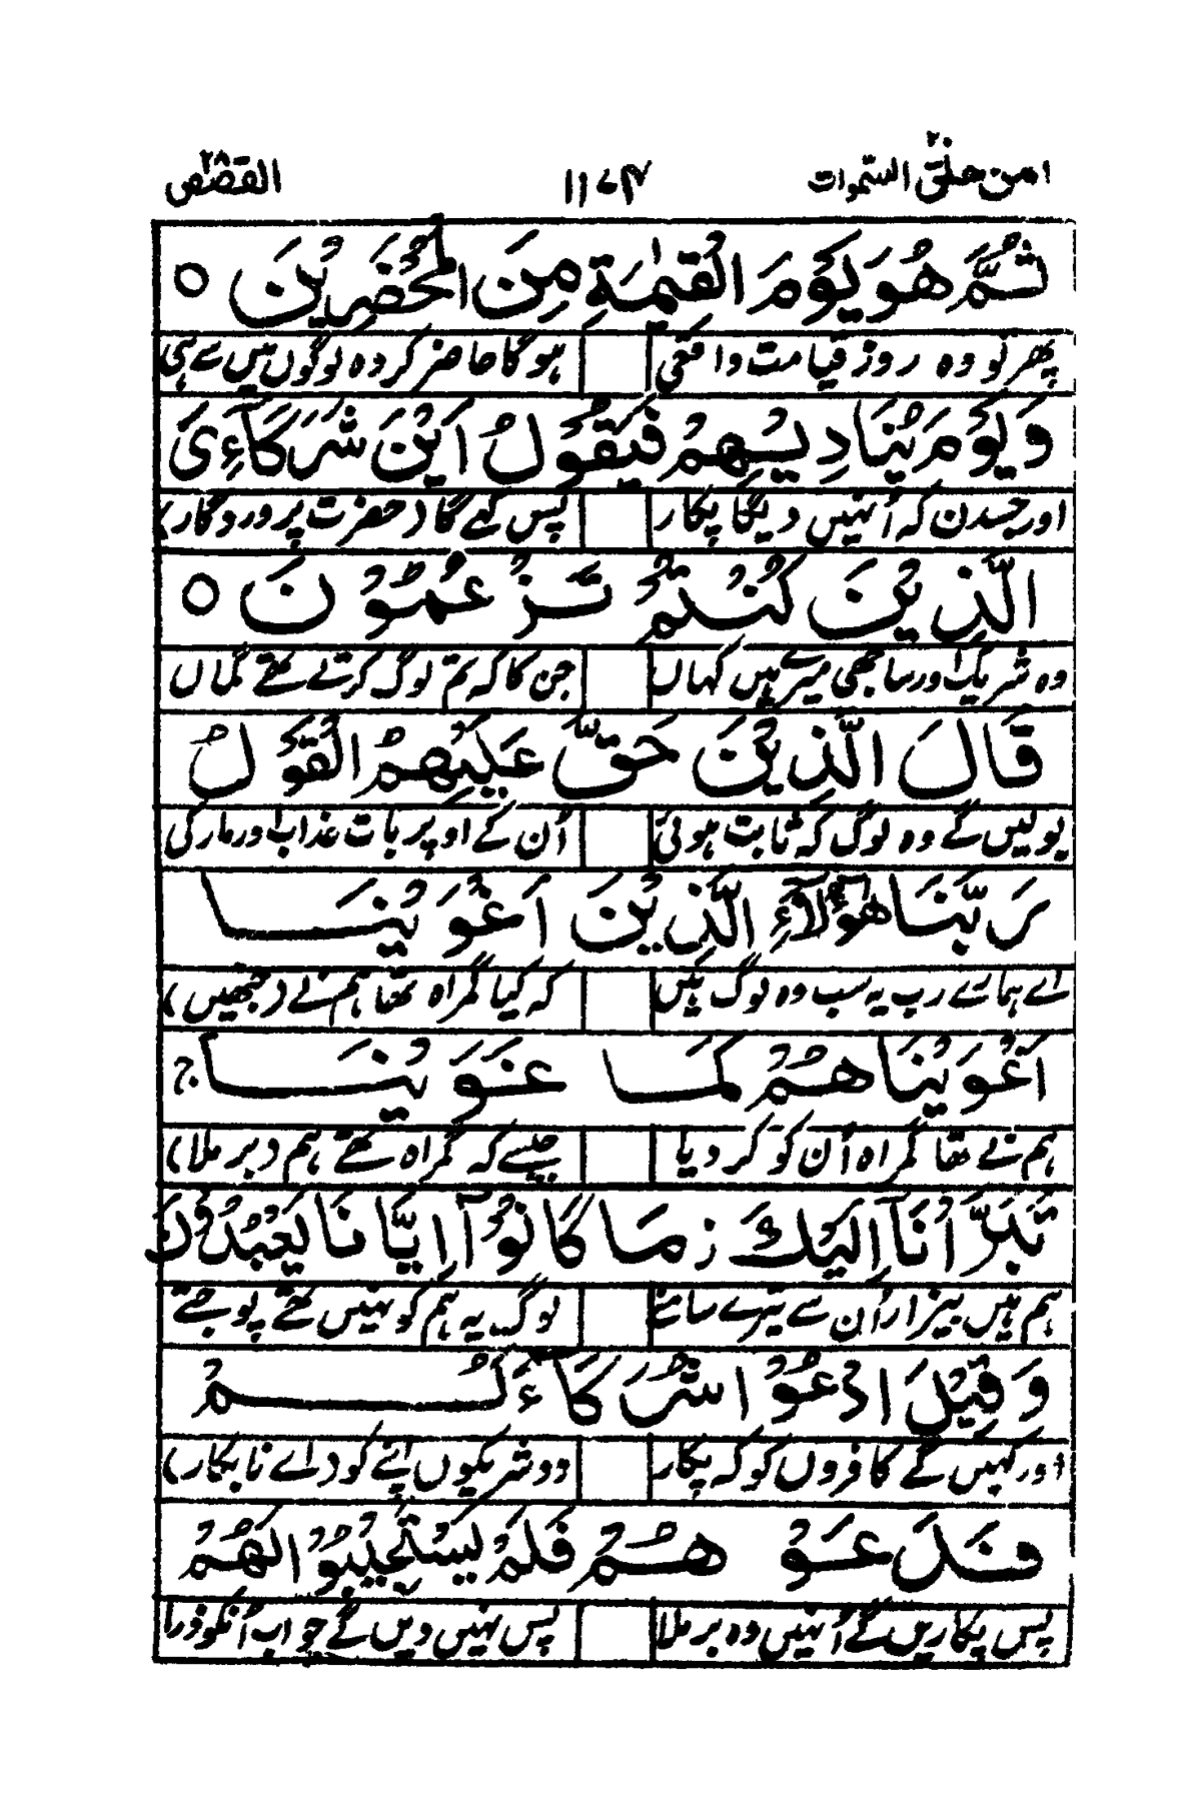 امن خلق السموات ٢٠ ١١٧٤ القصص ٢٨
ثُمَّ هُوَ يَوْمَ الْقِيٰمَةِ مِنَ الْمُحْضَرِيْنَ ○
پھر تو وہ روز قیامت واقعی ہوگا حاضر کردہ لوگوں میں سے ہی
وَ يَوْمَ يُنَادِيْهِمْ فَيَقُوْلُ اَيْنَ شُرَكَآءِىَ
اور جسدن کہ اُنہیں دیگا پکار پس کہے گا (حضرت پروردگار)
الَّذِيْنَ كُنْتُمْ تَزْعُمُوْنَ ○
وہ شریک اور ساجھی میرے ہیں کہاں جن کا کہ تم لوگ کرتے تھے گماں
قَالَ الَّذِيْنَ حَقَّ عَلَيْهِمُ الْقَوْلُ
بولیں گے وہ لوگ کہ ثابت ہوئی اُن کے اوپر بات عذاب اور مار کی
رَبَّنَا هٰٓؤُلَآءِ الَّذِيْنَ اَغْوَيْنَا
اے ہمارے رب یہ سب وہ لوگ ہیں کہ کیا گمراہ تھا ہم نے (جنھیں)
اَغْوَيْنَاهُمْ كَمَا غَوَيْنَا ج
ہم نے تھا گمراہ اُن کو کر دیا جیسے کہ گمراہ تھے ہم (برملا)
تَبَرَّاْنَآ اِلَيْكَ ز مَا كَانُوْٓا اِيَّانَا يَعْبُدُوْنَ
ہم ہیں بیزار اُن سے تیرے سامنے لوگ یہ ہم کو نہیں تھے پوجتے
وَ قِيْلَ ادْعُوْا شُرَكَآءَكُمْ
اور کہیں گے کافروں کو کہ پکار دو شریکوں اپنے کو (اے نابکار)
فَدَعَوْهُمْ فَلَمْ يَسْتَجِيْبُوْا لَهُمْ
پس پکاریں گے اُنہیں وہ برملا پس نہیں دیں گے جواب اُنکو ذرا